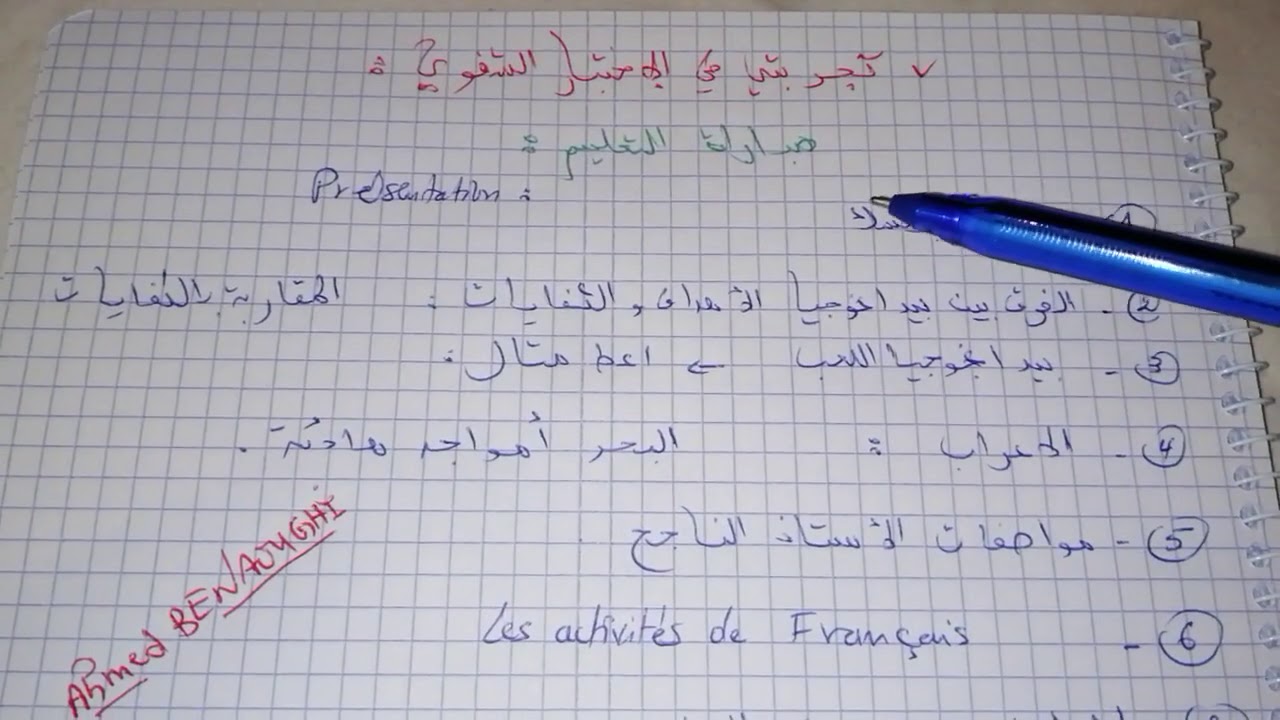 ✓ تجربتي في الاختبار الشفوي :
مباراة التعليم :
Présentation :
①
②- الفرق بين بيداغوجيا الأهداف و الكفايات : المقاربة بالكفايات
③- بيداغوجيا اللعب ← اعط مثال :
④- الاعراب : البحر أمواجه هادئة .
⑤- مواصفات الأستاذ الناجح
⑥- Les activités de Français
Ahmed BENAOUGHI